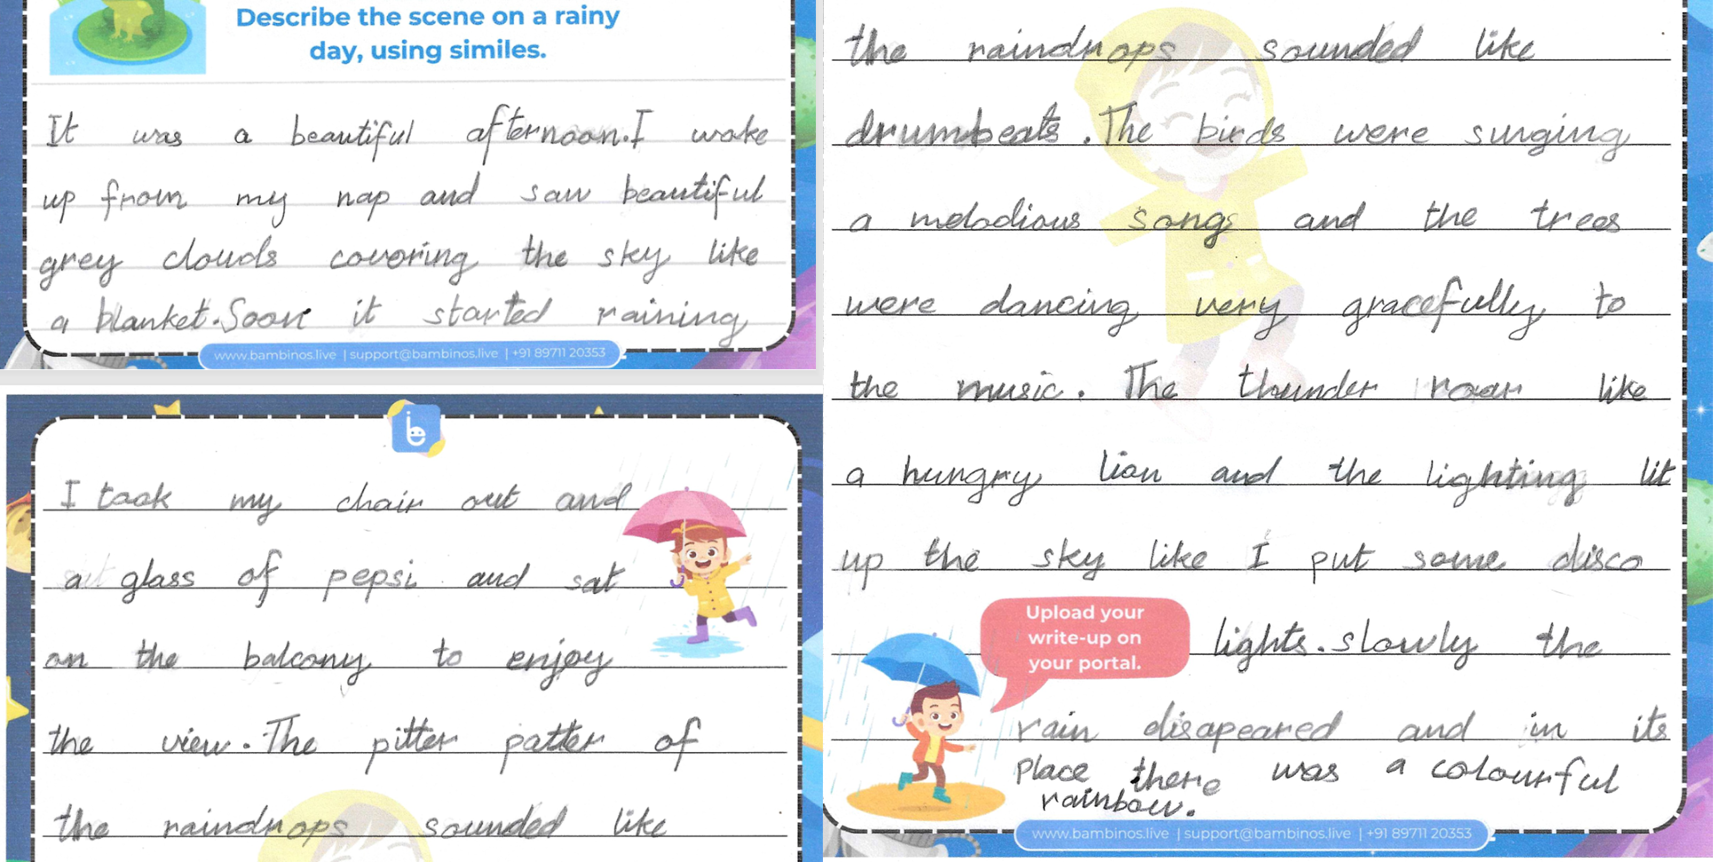 Describe the scene on a rainy
day, using similes.
It was a beautiful afternoon.I woke
up from my nap and saw beautiful
grey clouds covering the sky like
a blanket.Soon it started raining
www.bambinos.live | support@bambinos.live | +91 89711 20353
I took my chair out and
a glass of pepsi and sat
on the balcony to enjoy
the view.The pitter patter of
the raindrops sounded like
the raindrops sounded like
drumbeats.The birds were singing
a melodious songs and the trees
were dancing very gracefully to
the music. The thunder roar like
a hungry lion and the lighting lit
up the sky like I put some disco
Upload your
write-up on
your portal.
lights.slowly the
rain disapeared and in its
place there was a colourful
rainbow.
www.bambinos.live | support@bambinos.live | +91 89711 20353